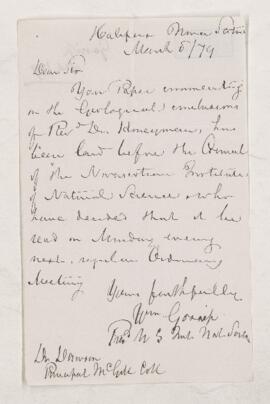 Halifax Nova Scotia
March 5/79
Dear Sir
Your Paper commenting
on the Geological conclusions
of Revd Dr. Honeyman, has
been laid before the Council
of the Novascotian Institute
of Natural Science, who
have decided that it be
read on Monday evening
next, regular Ordinary
Meeting
Yours faithfully
Wm Gossip
Prest N S Inst. Nat. Scien
Dr. Dawson
Principal McGill Coll